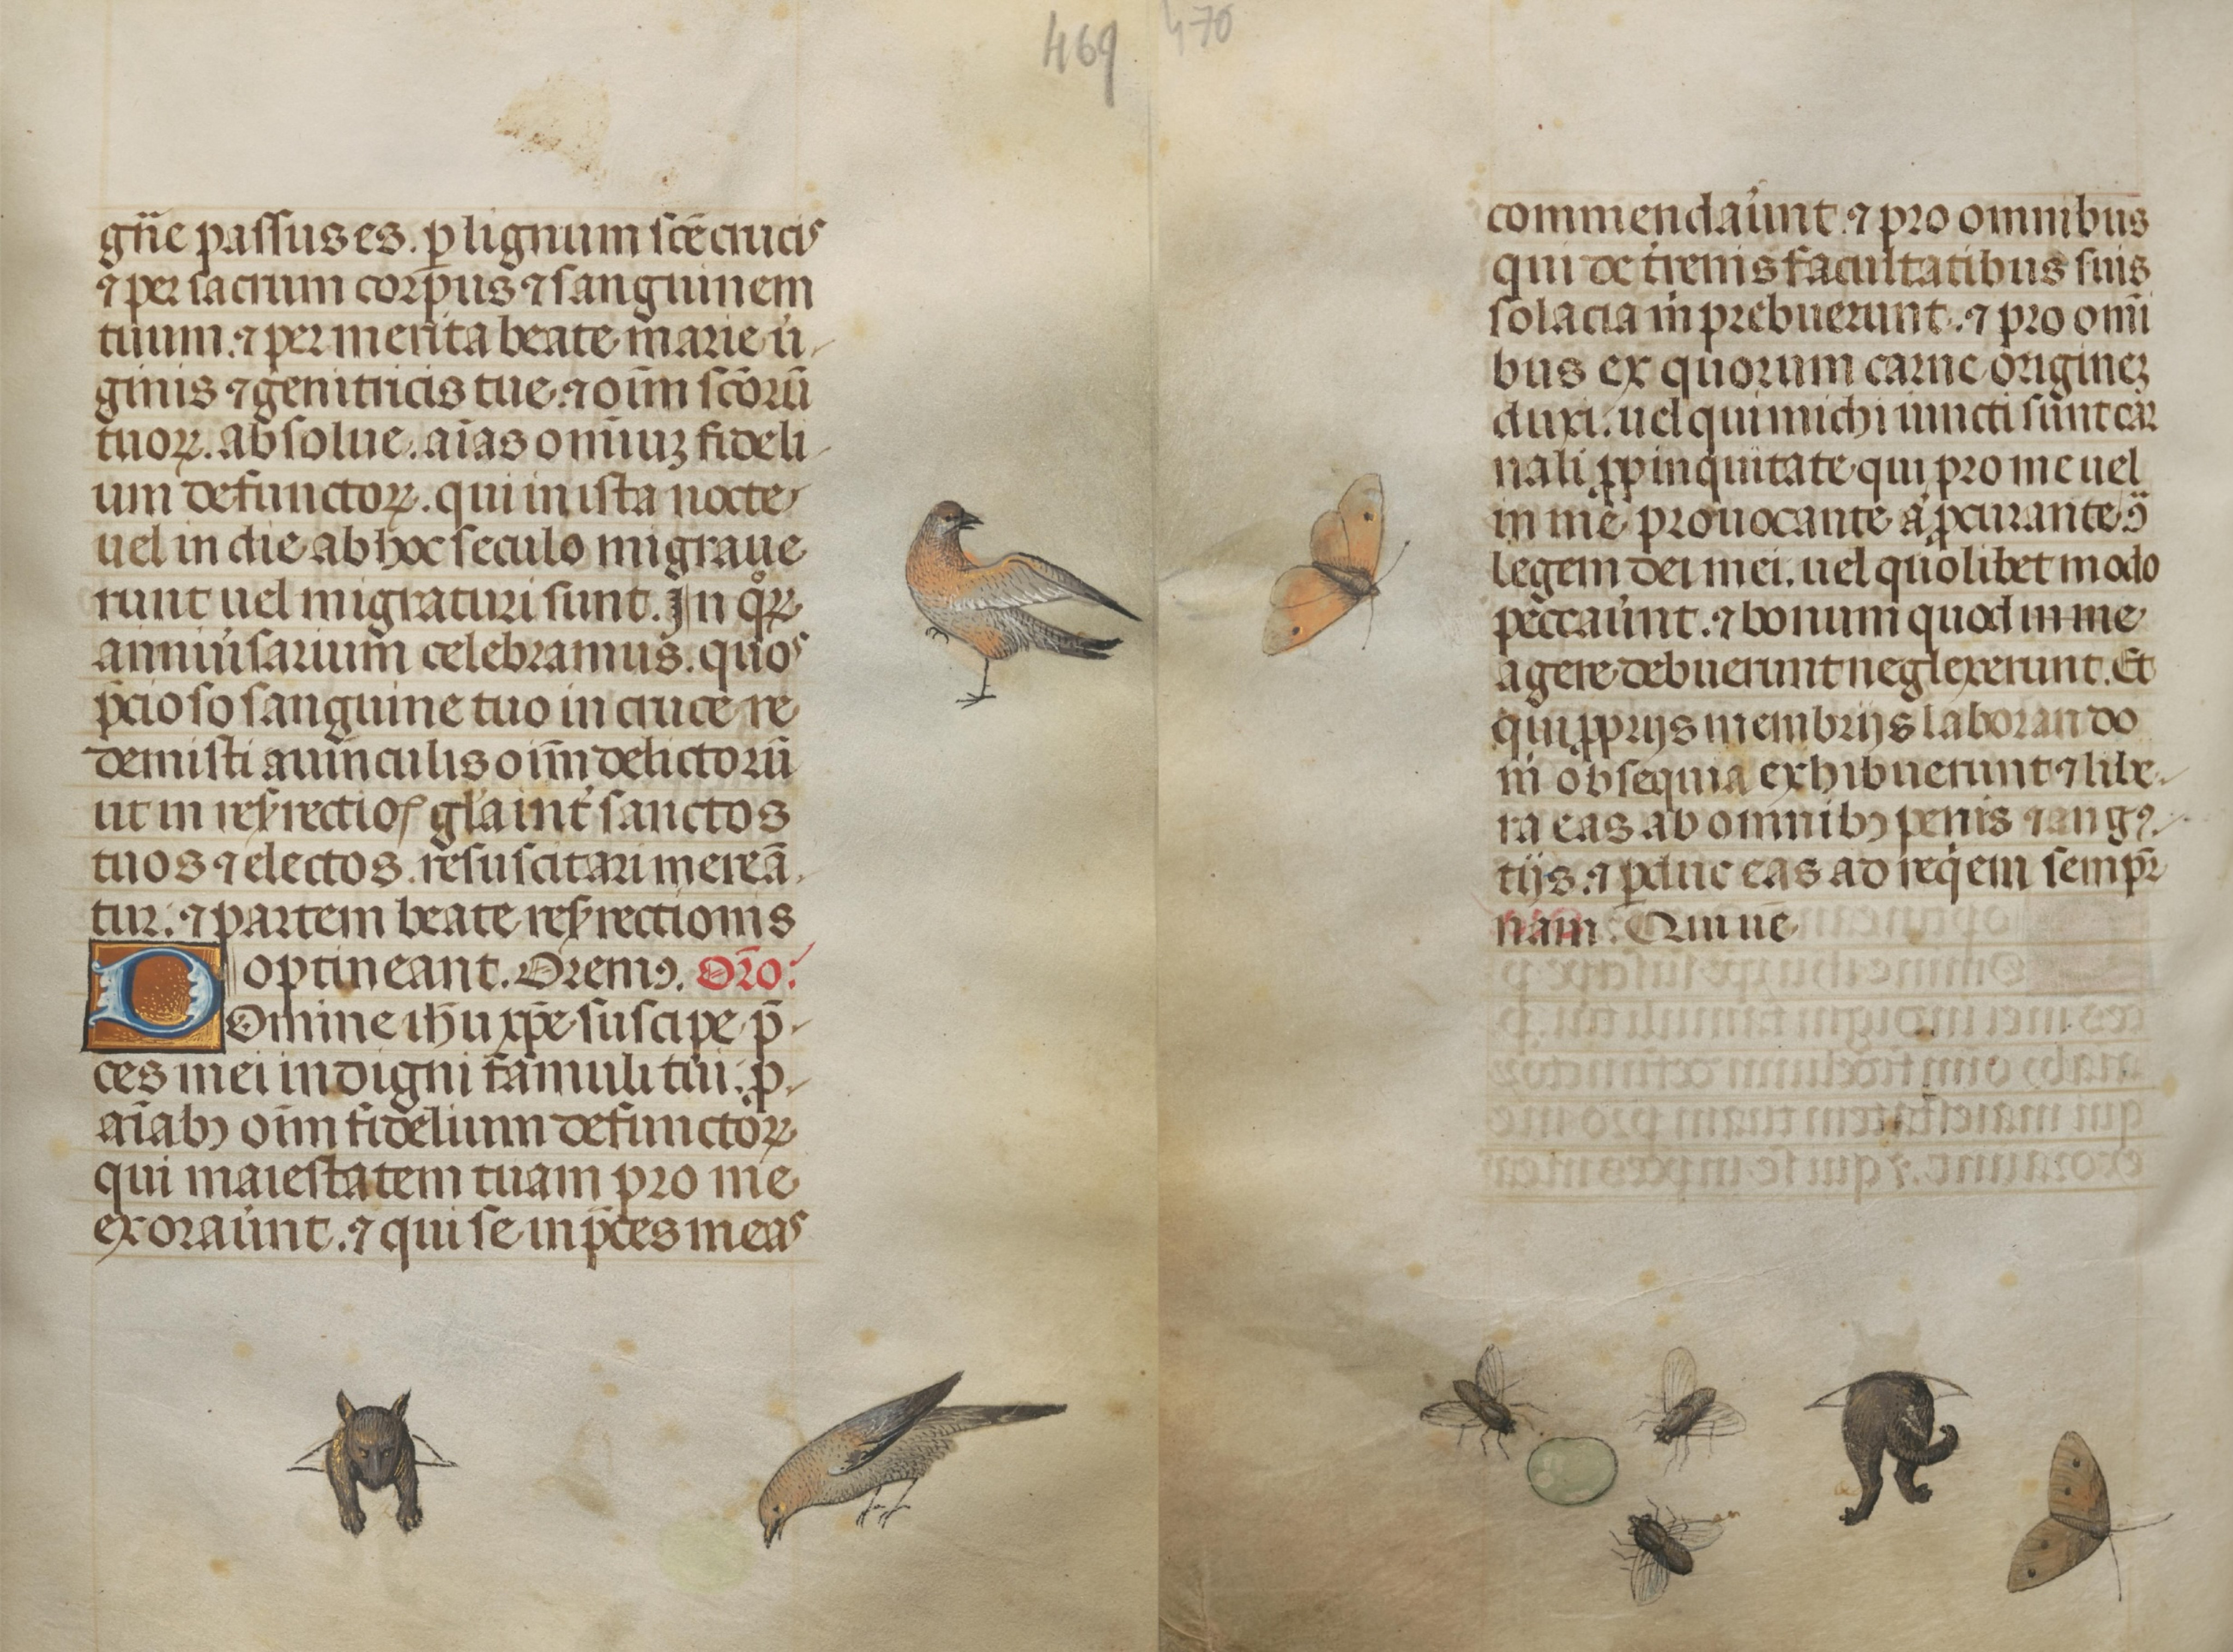 469
gn̄e passus es. ꝑ lignum sc̄e crucis
⁊ per sacrum corpus ⁊ sanguinem
tuum. ⁊ per merita beate marie ui
ginis ⁊ genitricis tue. ⁊ oīm sc̄orū
tuoꝝ. absolue. aīas omīuꝫ fideli
um defunctoꝝ. qui in ista nocte
uel in die ab hoc seculo migraue
runt uel migraturi sunt. In qͦꝝ
anniu̓sarium celebramus. quos
p̄cioso sanguine tuo in cruce re
demisti a uinculis oīm delictorū
ut in resꝛrectiōe gl̓a int̓ sanctos
tuos ⁊ electos. resuscitari mereā
tur. ⁊ partem beate resꝛrectionis
optineant. Oremꝰ. Or̄o.
Domine ih̄u xp̄e suscipe p̄
ces mei indigni famuli tui. ꝓ
aīabꝰ oīm fidelium defunctoꝝ
qui maiestatem tuam pro me
exorau̓unt. ⁊ qui se in p̄ces meas
470
commendau̓unt. ⁊ pro omnibus
qui de t̓renis facultatibus suis
solacia m̓ prebuerunt. ⁊ pro omī
bus ex quorum carne origineꝫ
duxi. uel qui michi iuncti sunt car
nali ꝓpinquitate qui pro me uel
in me prouocante a̓ ꝓcurante ꝯ̄
legem dei mei. uel quolibet modo
peccau̓unt. ⁊ bonum quod in me
agere debuerunt neglexerunt. Et
qui ꝓprijs membrijs laborando
m̓ obsequia exhibuerunt ⁊ libe
ra eas ab omnibꝰ penis ⁊ angꝰ
tijs. ⁊ ꝑduc eas ad reqͥem sempit̓
nam. Qui ue